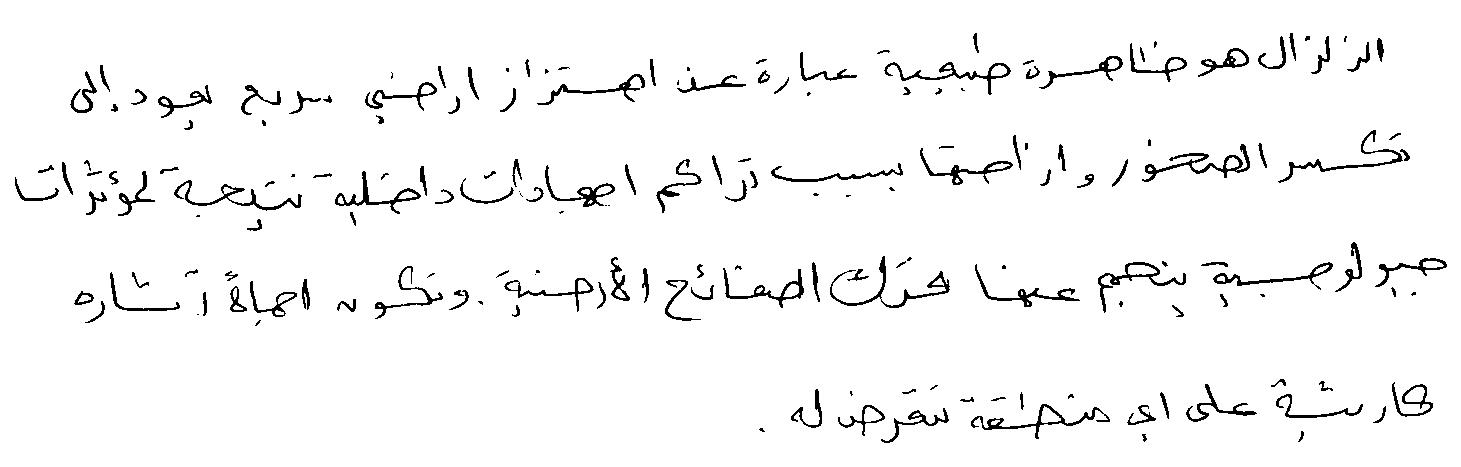 الزلزال هو ظاهرة طبيعية عبارة عن اهتزاز اراضي سريع يعود إلى
تكسر الصخور وازاحتها بسبب تراكم اجهادات داخلية نتيجة لمؤثرات
جيولوجية ينجم عنها تحرك الصفائح الأرضية . وتكون احياناً آثاره
كارثية على اي منطقة تتعرض له .